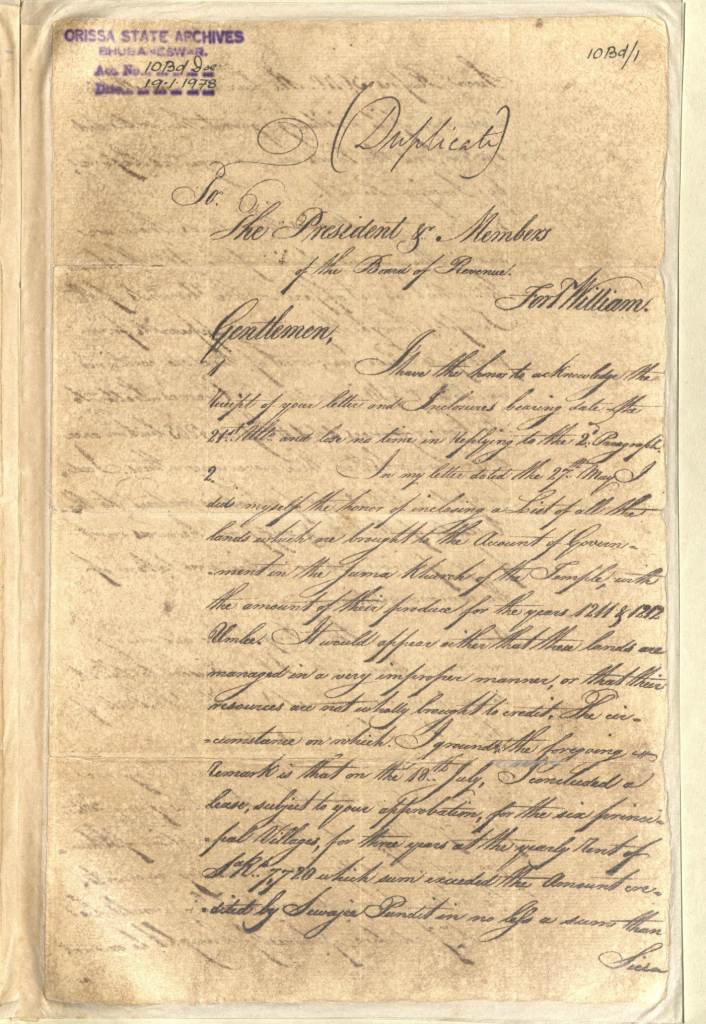 ORISSA STATE ARCHIVES
BHUBANESWAR.
Acc. No. 10Bd Doc
Date 19.1.1978
10Bd/1
(Duplicate)
To.
The President & Members
of the Board of Revenue.
Fort William.
Gentlemen,
1 I have the honor to acknowledge the
receipt of your letter and Inclosures bearing date the
21st Ulto. and lose no time in replying to the 2d. Paragraph.
2 In my letter dated the 27th May I
did myself the honor of inclosing a List of all the
lands which are brought to the Account of Govern-
-ment in the Juma Khurch of the Temple, with
the amount of their produce for the years 1211 & 1212
Umlee. It would appear either that these lands are
managed in a very improper manner, or that their
resources are not wholly brought to credit. The cir-
-cumstance on which I ground the foregoing
remark is that on the 18th July, I concluded a
lease, subject to your approbation, for the six princi-
-pal Villages, for three years at the yearly rent of
Sa. Rs. 7,720 which sum exceeded the Amount cre-
-dited by Sewajee Pundit in no less a sum than
Sicca